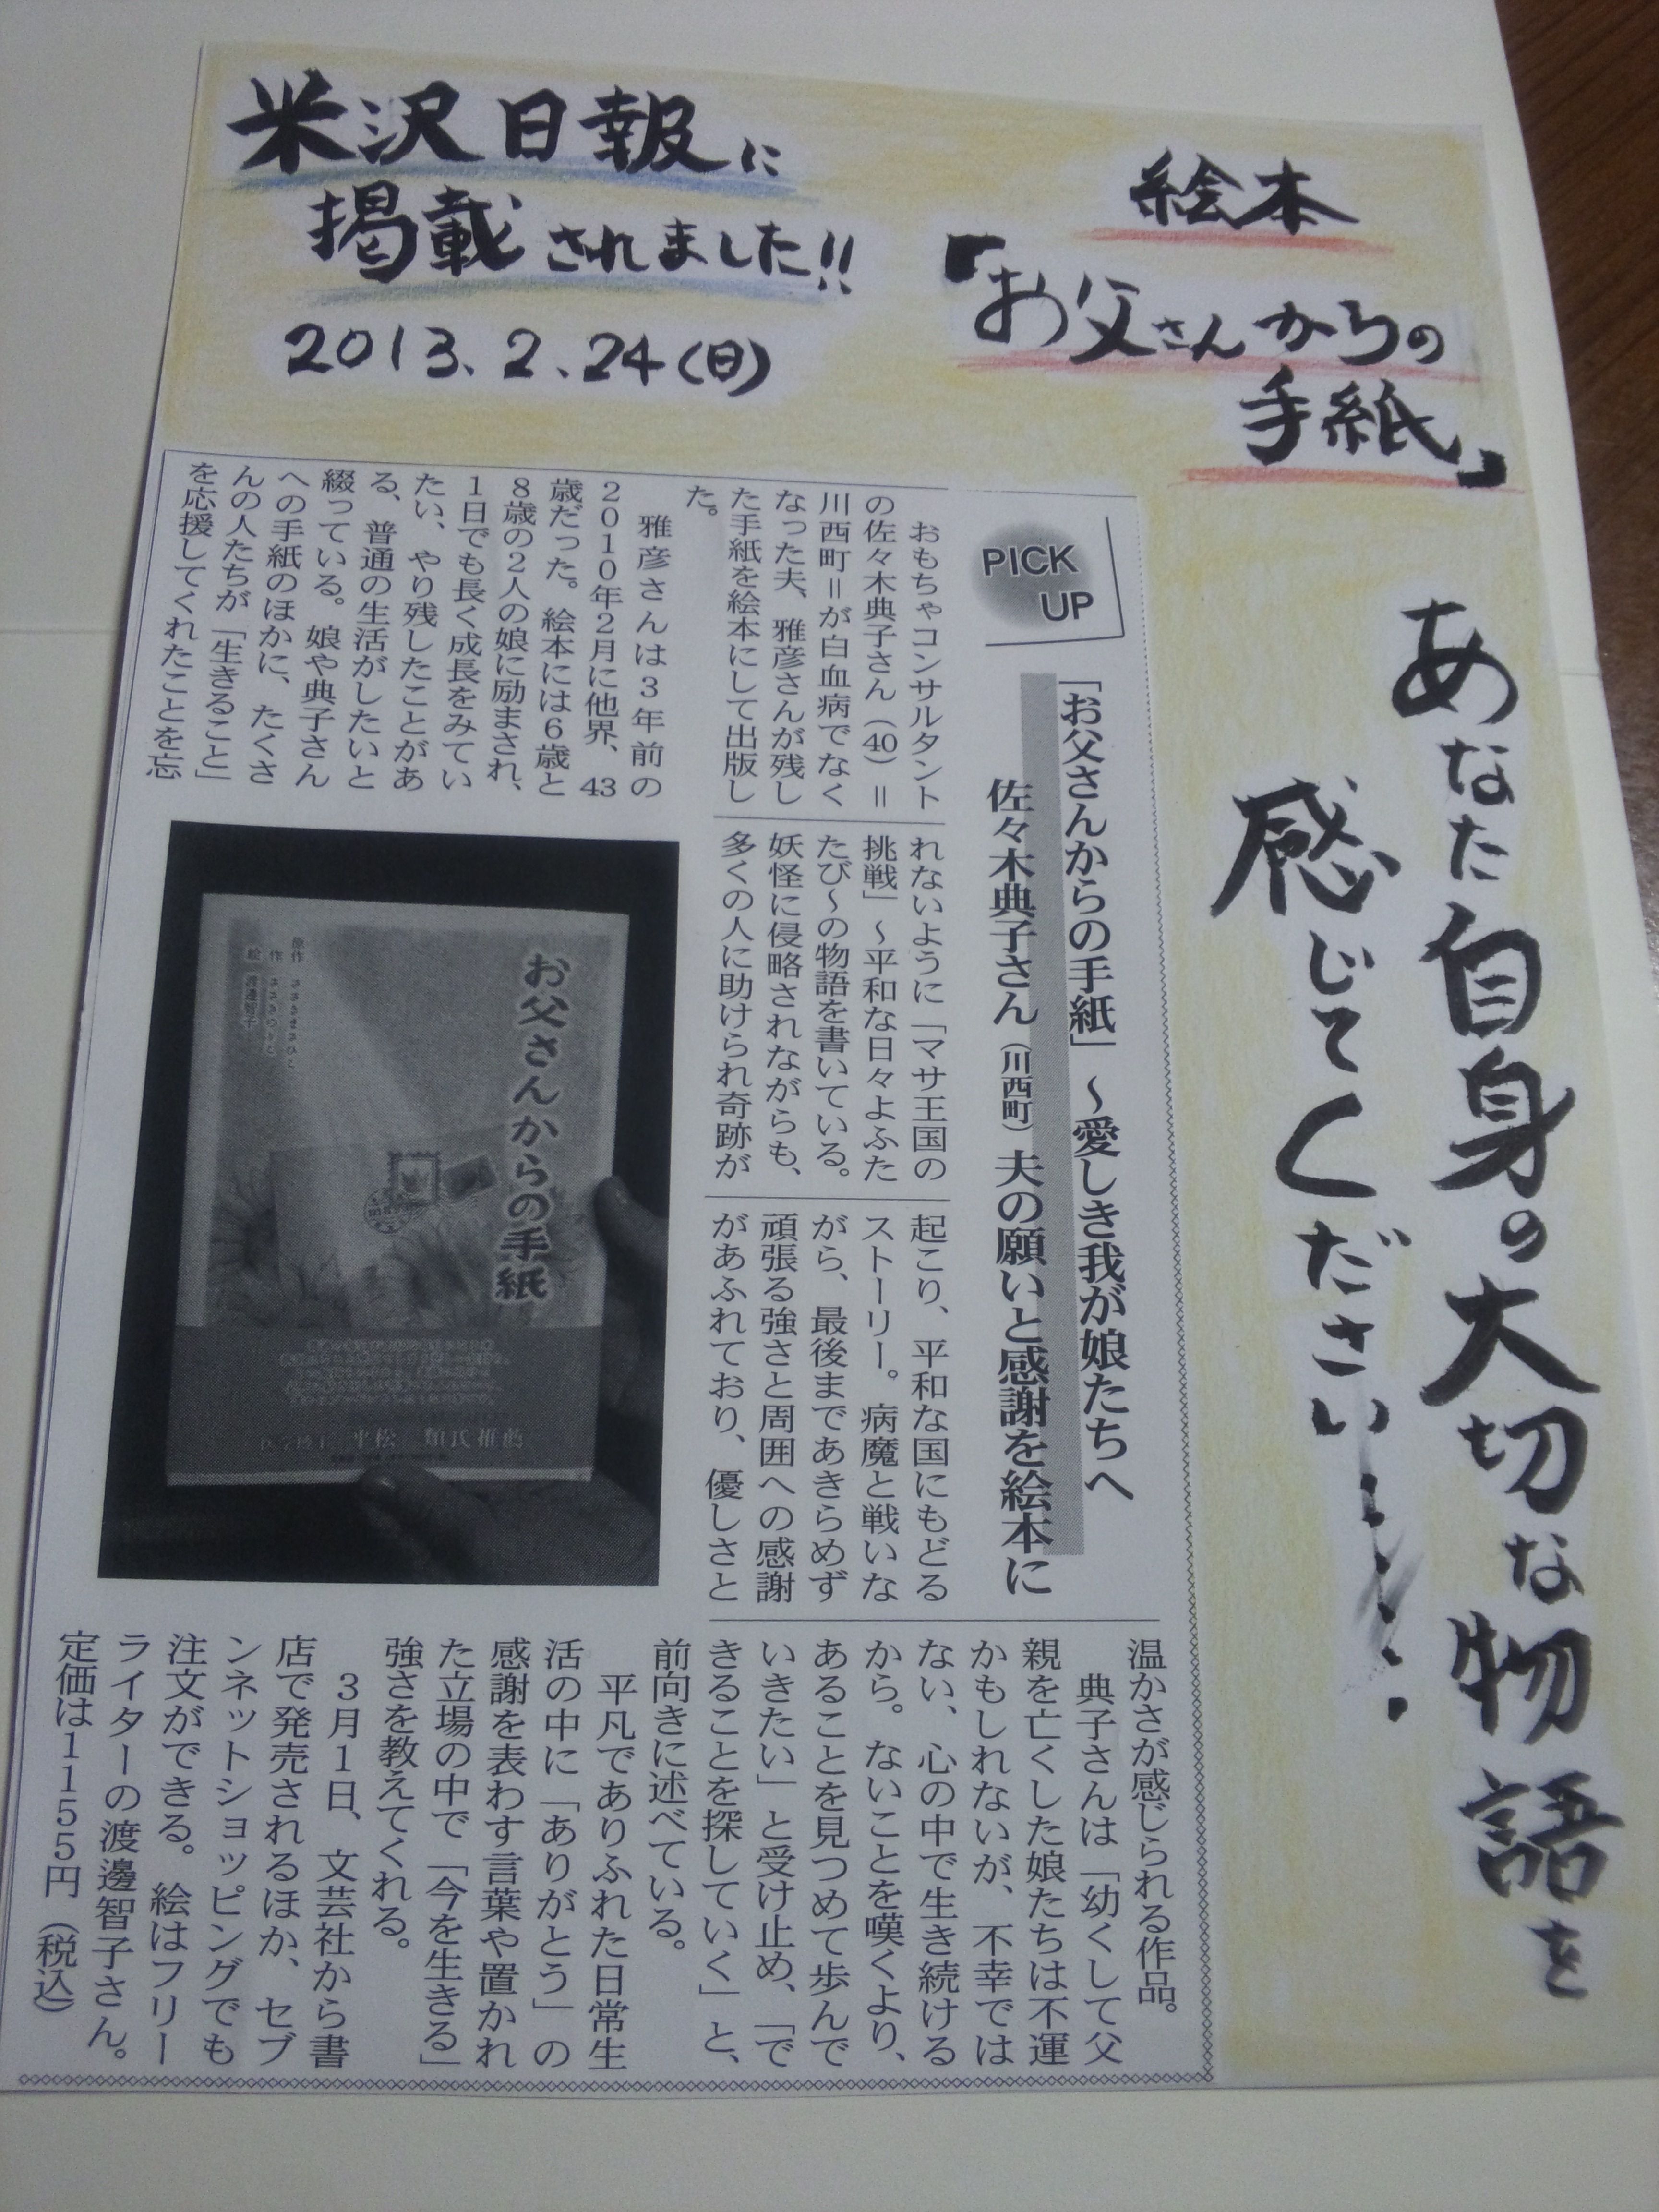 米沢日報に
掲載されました!!
2013.2.24(日)
絵本
『お父さんからの
手紙』
あなた自身の大切な物語を
感じてください・・・・
PICK
UP
「お父さんからの手紙」〜愛しき我が娘たちへ
佐々木典子さん(川西町)夫の願いと感謝を絵本に
おもちゃコンサルタント
の佐々木典子さん(40)=
川西町=が白血病でなく
なった夫、雅彦さんが残し
た手紙を絵本にして出版し
た。
雅彦さんは3年前の
2010年2月に他界、43
歳だった。絵本には6歳と
8歳の2人の娘に励まされ、
1日でも長く成長をみてい
たい、やり残したことがあ
る、普通の生活がしたいと
綴っている。娘や典子さん
への手紙のほかに、たくさ
んの人たちが「生きること」
を応援してくれたことを忘
れないように「マサ王国の
挑戦」〜平和な日々よふた
たび〜の物語を書いている。
妖怪に侵略されながらも、
多くの人に助けられ奇跡が
起こり、平和な国にもどる
ストーリー。病魔と戦いな
がら、最後まであきらめず
頑張る強さと周囲への感謝
があふれており、優しさと
温かさが感じられる作品。
典子さんは「幼くして父
親を亡くした娘たちは不運
かもしれないが、不幸では
ない、心の中で生き続ける
から。ないことを嘆くより、
あることを見つめて歩んで
いきたい」と受け止め、「で
きることを探していく」と、
前向きに述べている。
平凡でありふれた日常生
活の中に「ありがとう」の
感謝を表わす言葉や置かれ
た立場の中で「今を生きる」
強さを教えてくれる。
3月1日、文芸社から書
店で発売されるほか、セブ
ンネットショッピングでも
注文ができる。絵はフリー
ライターの渡邊智子さん。
定価は1155円(税込)
お父さんからの手紙
原作 ささきまさひこ
作 ささきのりこ
絵 渡邊智子
平松 類氏推薦